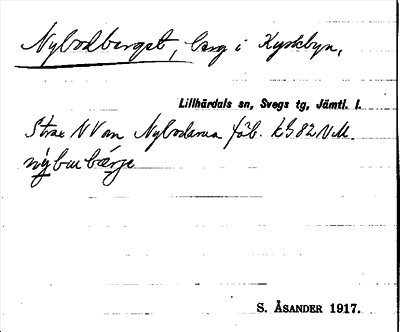 Nybodberget, berg i Kyrkbyn,
Lillhärdals sn, Svegs tg, Jämtl. l.
Strax NV om Nybodarna fäb. kg. 82 NM.
S. ÅSANDER 1917.